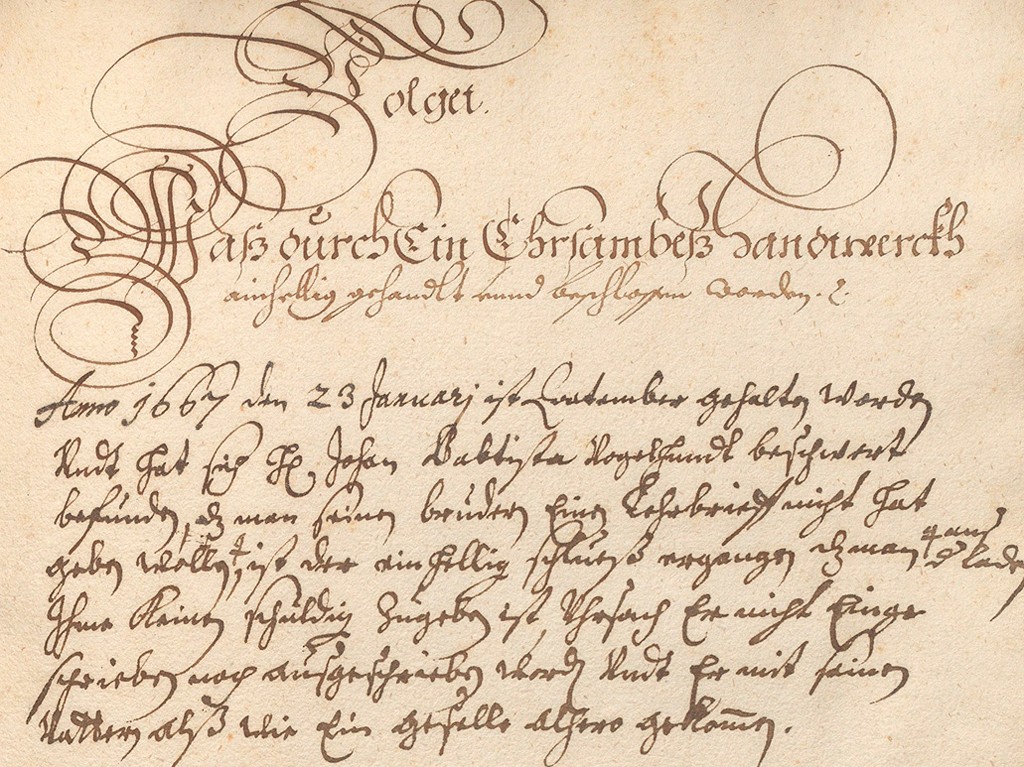 Folget.
Waß durch Ein Ehrsambeß Handtwerckh
ainhellig gehandlt unnd beschlossen worden.
Anno 1667 den 23 Januarj ist Quatember gehalten worden
Undt hat sich H. Johan Baktista Vogelhundt beschwert
befunden, dz man seinen bruedern Einen Lehrbrieff nicht hat
geben wollen, ist der einhellig schlueß ergangen dz man aus d laden
Ihme Keinen schuldig Zugeben ist, Uhrsach Er nicht Einge
schrieben noch außgeschrieben worden Undt Er mit seinen
Vattern alß wie Ein geselle alhero gekommen.